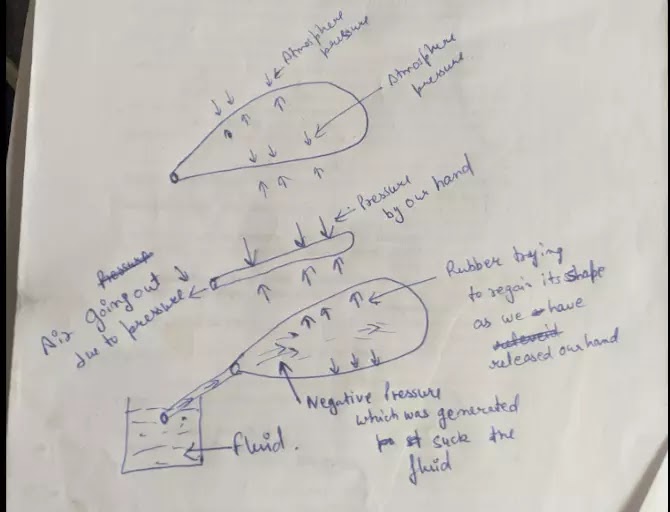 Atmosphere
pressure
Atmosphere
pressure.
Pressure
by our hand
Pressure
Air going out
due to pressure
Rubber trying
to regain its shape
as we have
released our hand
Negative Pressure
which was generated
suck the
fluid
fluid.